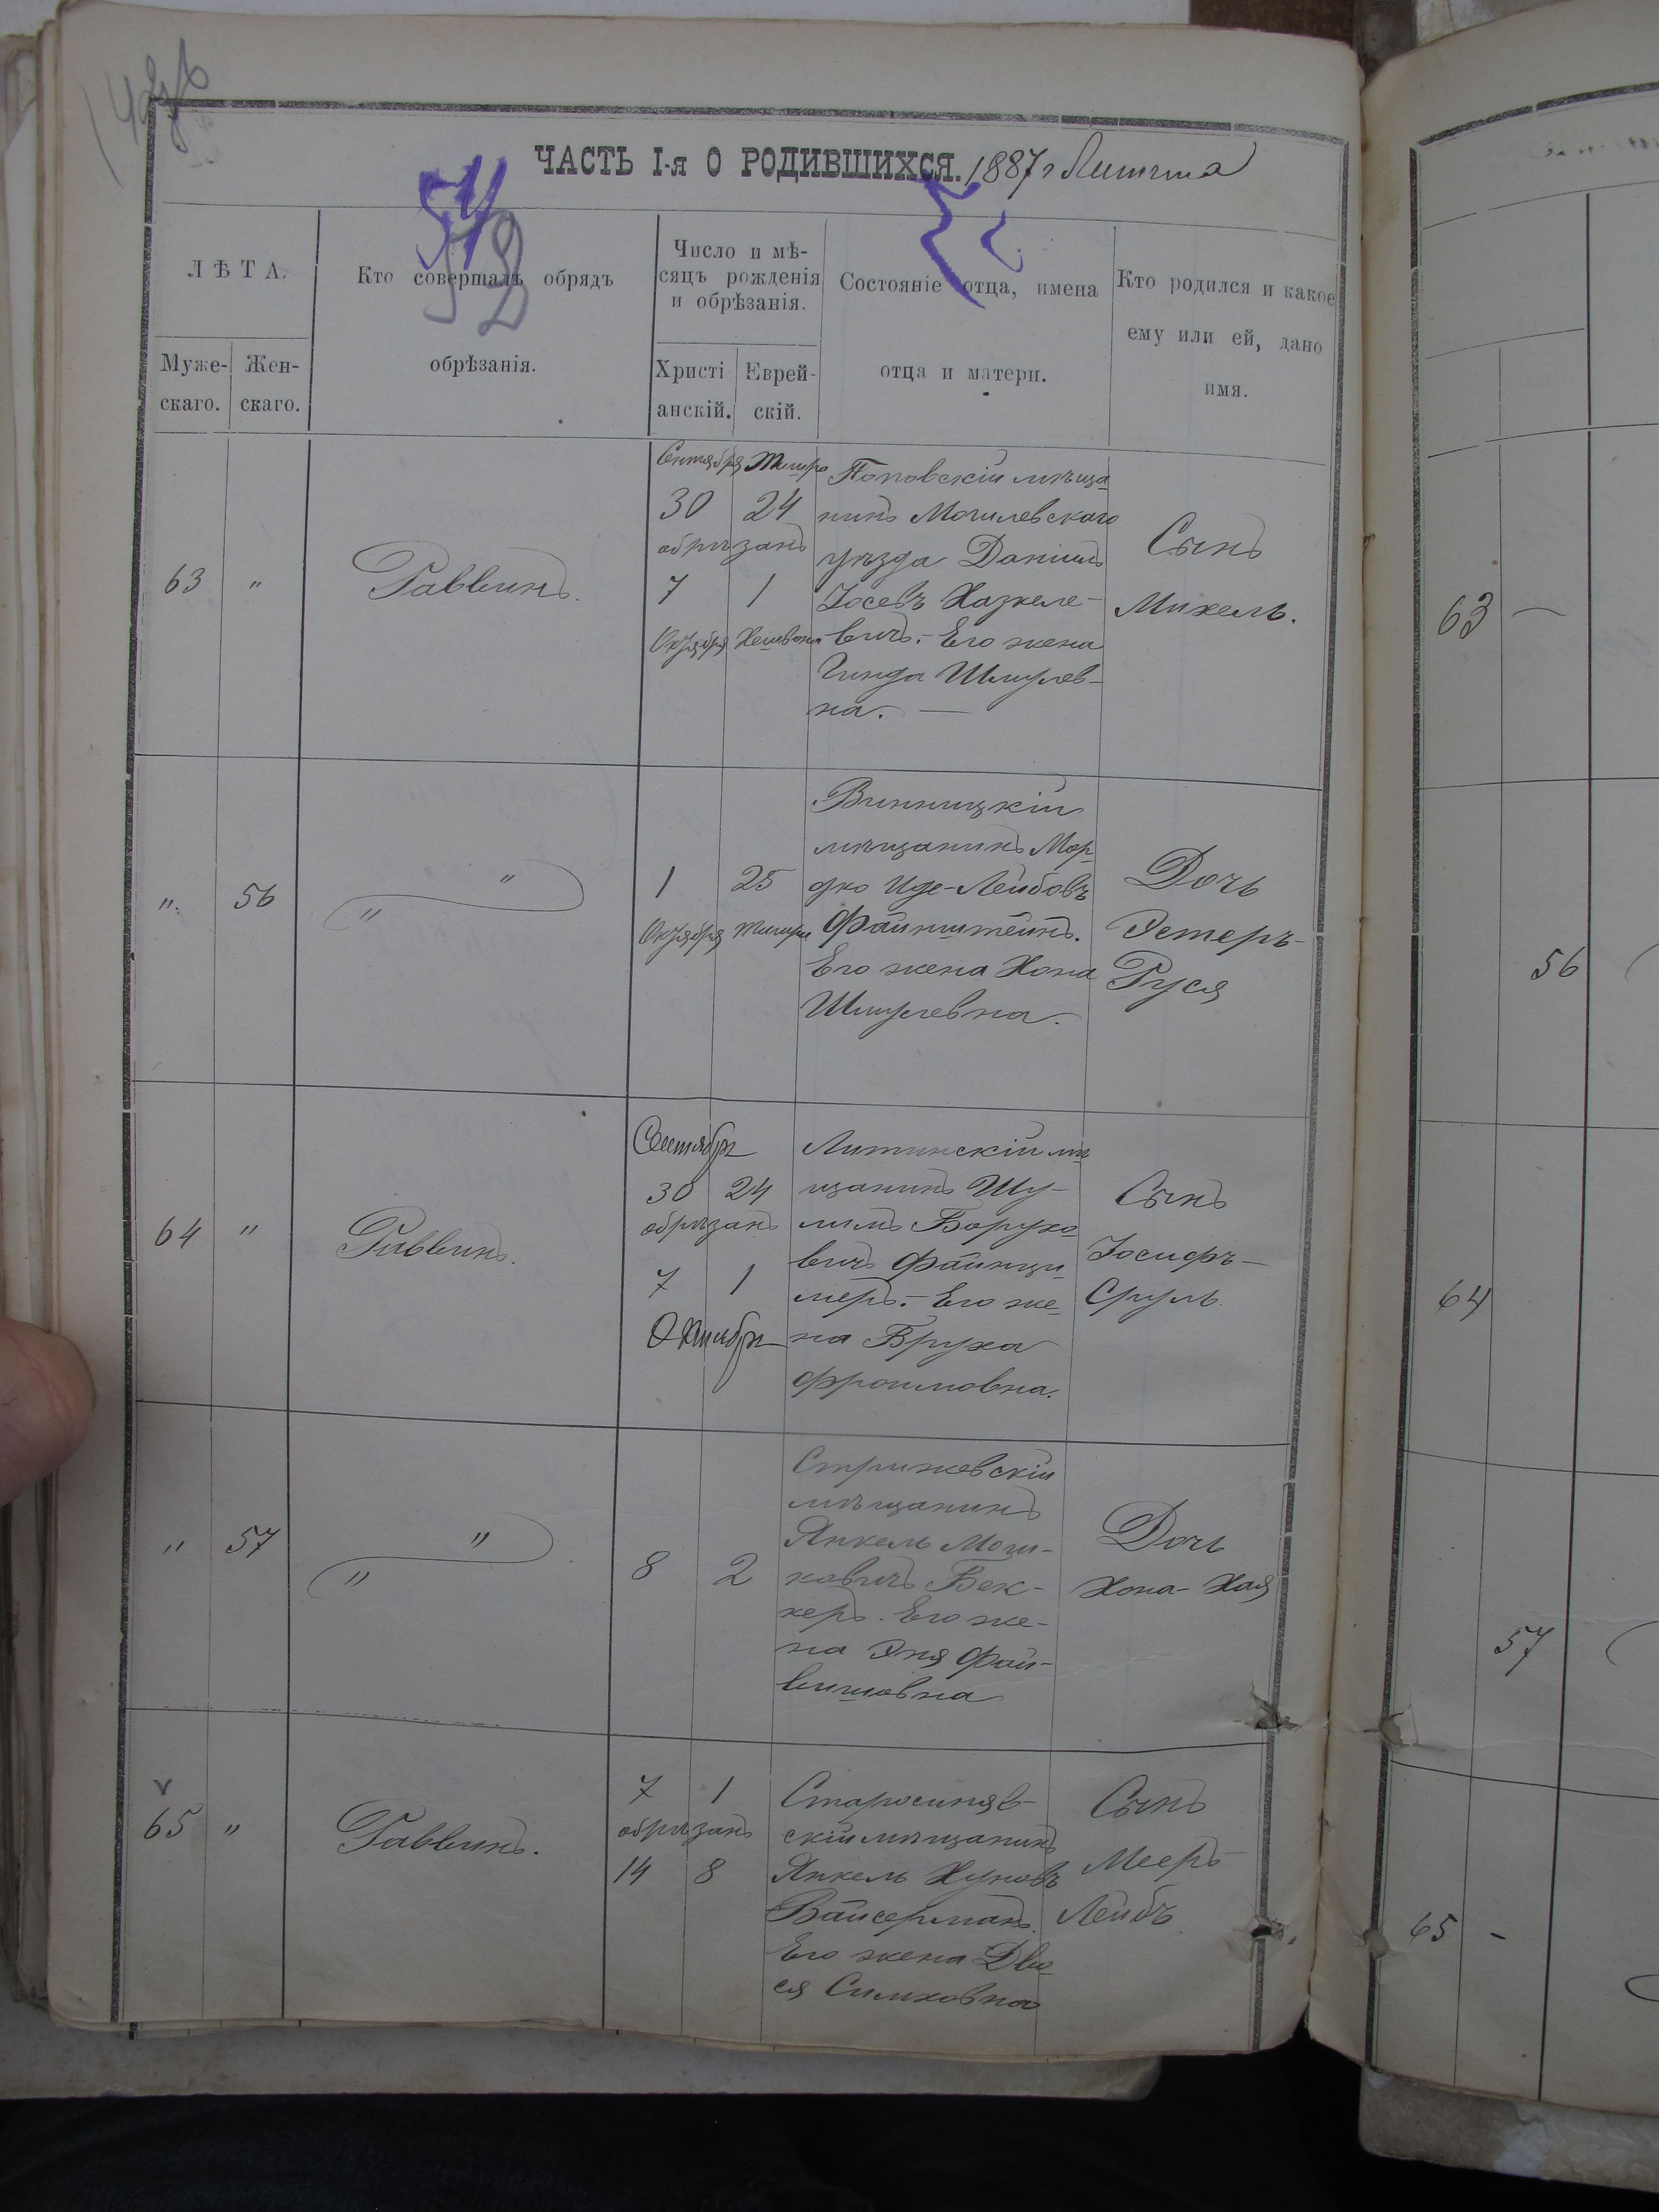 ЧАСТЬ I-я О РОДИВШИХСЯ. 1887 г Литина
54
52
ЛѢТА.
Муже-
скаго.
Жен-
скаго.
Кто совершалъ обрядъ
обрѣзанія.
Число и мѣ-
сяцъ рожденія
и обрѣзанія.
Христі
анскій.
Еврей-
скій.
Состояніе отца, имена
отца и матери.
Кто родился и какое
ему или ей, дано
имя.
63
"
Раввинъ.
Сентября Тишри
30 24
обрѣзанъ
7 1
Октября Хешвонъ
мѣща
нинъ Могилевскаго
уѣзда Даніилъ
Іосевъ Хазкеле-
вичъ. - Его жена
Гинда Шмулев-
на. —
Сынъ
Михель.
".
56
" "
1 25
Октября Тишри
Винницкій
мѣщанинъ Мор
дко Иде-Лейбовъ
Файнштейнъ.
Его жена Хона
Шмулевна.
Дочь
Эстеръ-
Руся
64
"
Раввинъ.
Сентября
30 24
обрѣзанъ
7 1
Октября
Литинскій мѣ
щанинъ Шу-
лимъ Борухо
вичъ Файнци
меръ. - Его же
на Бруха
Фроимовна.
Сынъ
Іосифъ-
Сруль.
"
57
" "
8 2
Стрижевскій
мѣщанинъ
Янкель Мош-
ковичъ Бек-
керъ. Его же-
на Эня Фай-
вишовна
Дочь
Хона-Хая
65
"
Раввинъ.
7 1
обрѣзанъ
14 8
Старосиняв-
скій мѣщанинъ
Янкель Хуновъ
Вайсерманъ.
Его жена Дво
ся Симховна
Сынъ
Мееръ-
Лейбъ
63 —
56
64
57
65 -